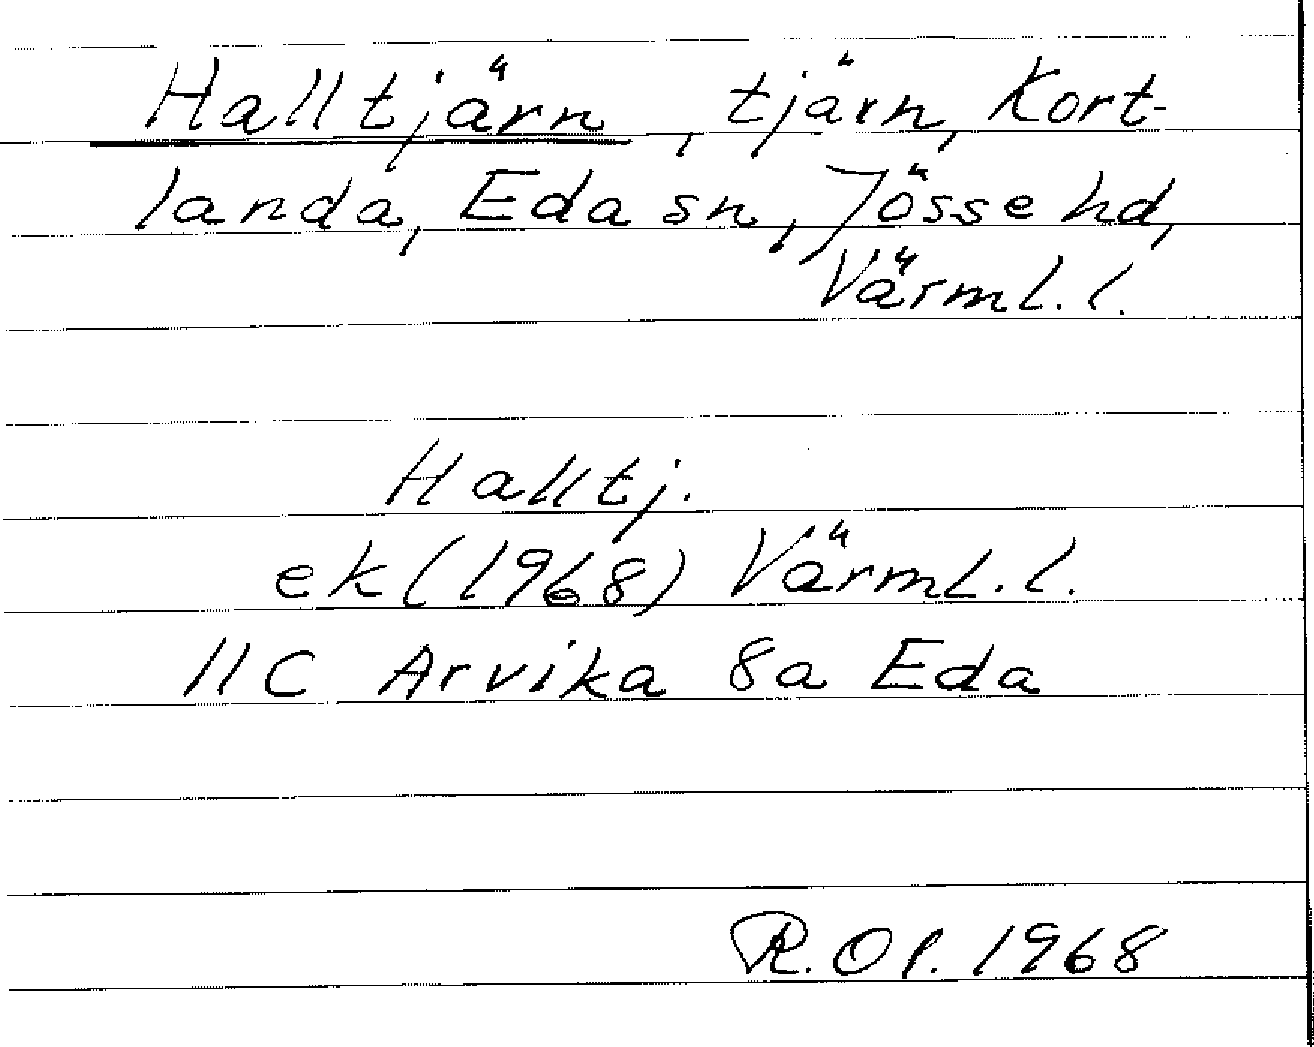 Halltjärn, tjärn, Kort-
landa, Eda sn, Jösse hd,
Värml. l.
Halltj.
ek (1968) Värml. l.
11C Arvika 8a Eda
R. Ol. 1968